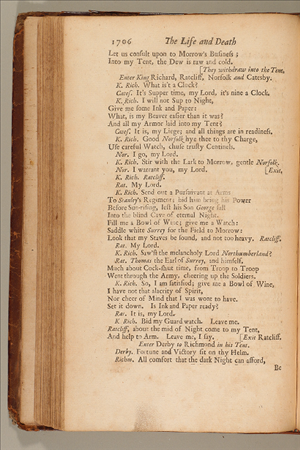 1706 The Life and Death
Let us consult upon to Morrow's Business;
Into my Tent, the Dew is raw and cold.
[They withdraw into the Tent.
Enter King Richard, Ratcliff, Norfolk and Catesby.
K. Rich. What is't a Clock?
Catef. It's Supper time, my Lord, it's nine a Clock.
K. Rich. I will not Sup to Night,
Give me some Ink and Paper:
What, is my Beaver easier than it was?
And all my Armor laid into my Tent?
Catef. It is, my Liege; and all things are in readiness.
K. Rich. Good Norfolk hye thee to thy Charge,
Use careful Watch, chuse trusty Centinels.
Nor. I go, my Lord.
K. Rich. Stir with the Lark to Morrow, gentle Norfolk.
Nor. I warrant you, my Lord. [Exit.
K. Rich. Ratcliff.
Rat. My Lord.
K. Rich. Send out a Pursuivant at Arms
To Stanley's Regiment; bid him bring his Power
Before Sun-rising, lest his Son George fall
Into the blind Cave of eternal Night.
Fill me a Bowl of Wine; give me a Watch:
Saddle white Surrey for the Field to Morrow:
Look that my Staves be sound, and not too heavy. Ratcliff.
Rat. My Lord.
K. Rich. Saw'st the melancholy Lord Northumberland?
Rat. Thomas the Earl of Surrey, and himself,
Much about Cock-shut time, from Troop to Troop
Went through the Army, cheering up the Soldiers.
K. Rich. So, I am satisfied; give me a Bowl of Wine,
I have not that alacrity of Spirit,
Nor cheer of Mind that I was wont to have.
Set it down. Is Ink and Paper ready?
Rat. It is, my Lord.
K. Rich. Bid my Guard watch. Leave me.
Ratcliff, about the mid of Night come to my Tent,
And help to Arm. Leave me, I say. [Exit Ratcliff.
Enter Derby to Richmond in his Tent.
Derby. Fortune and Victory sit on thy Helm.
Richm. All comfort that the dark Night can afford,
Be